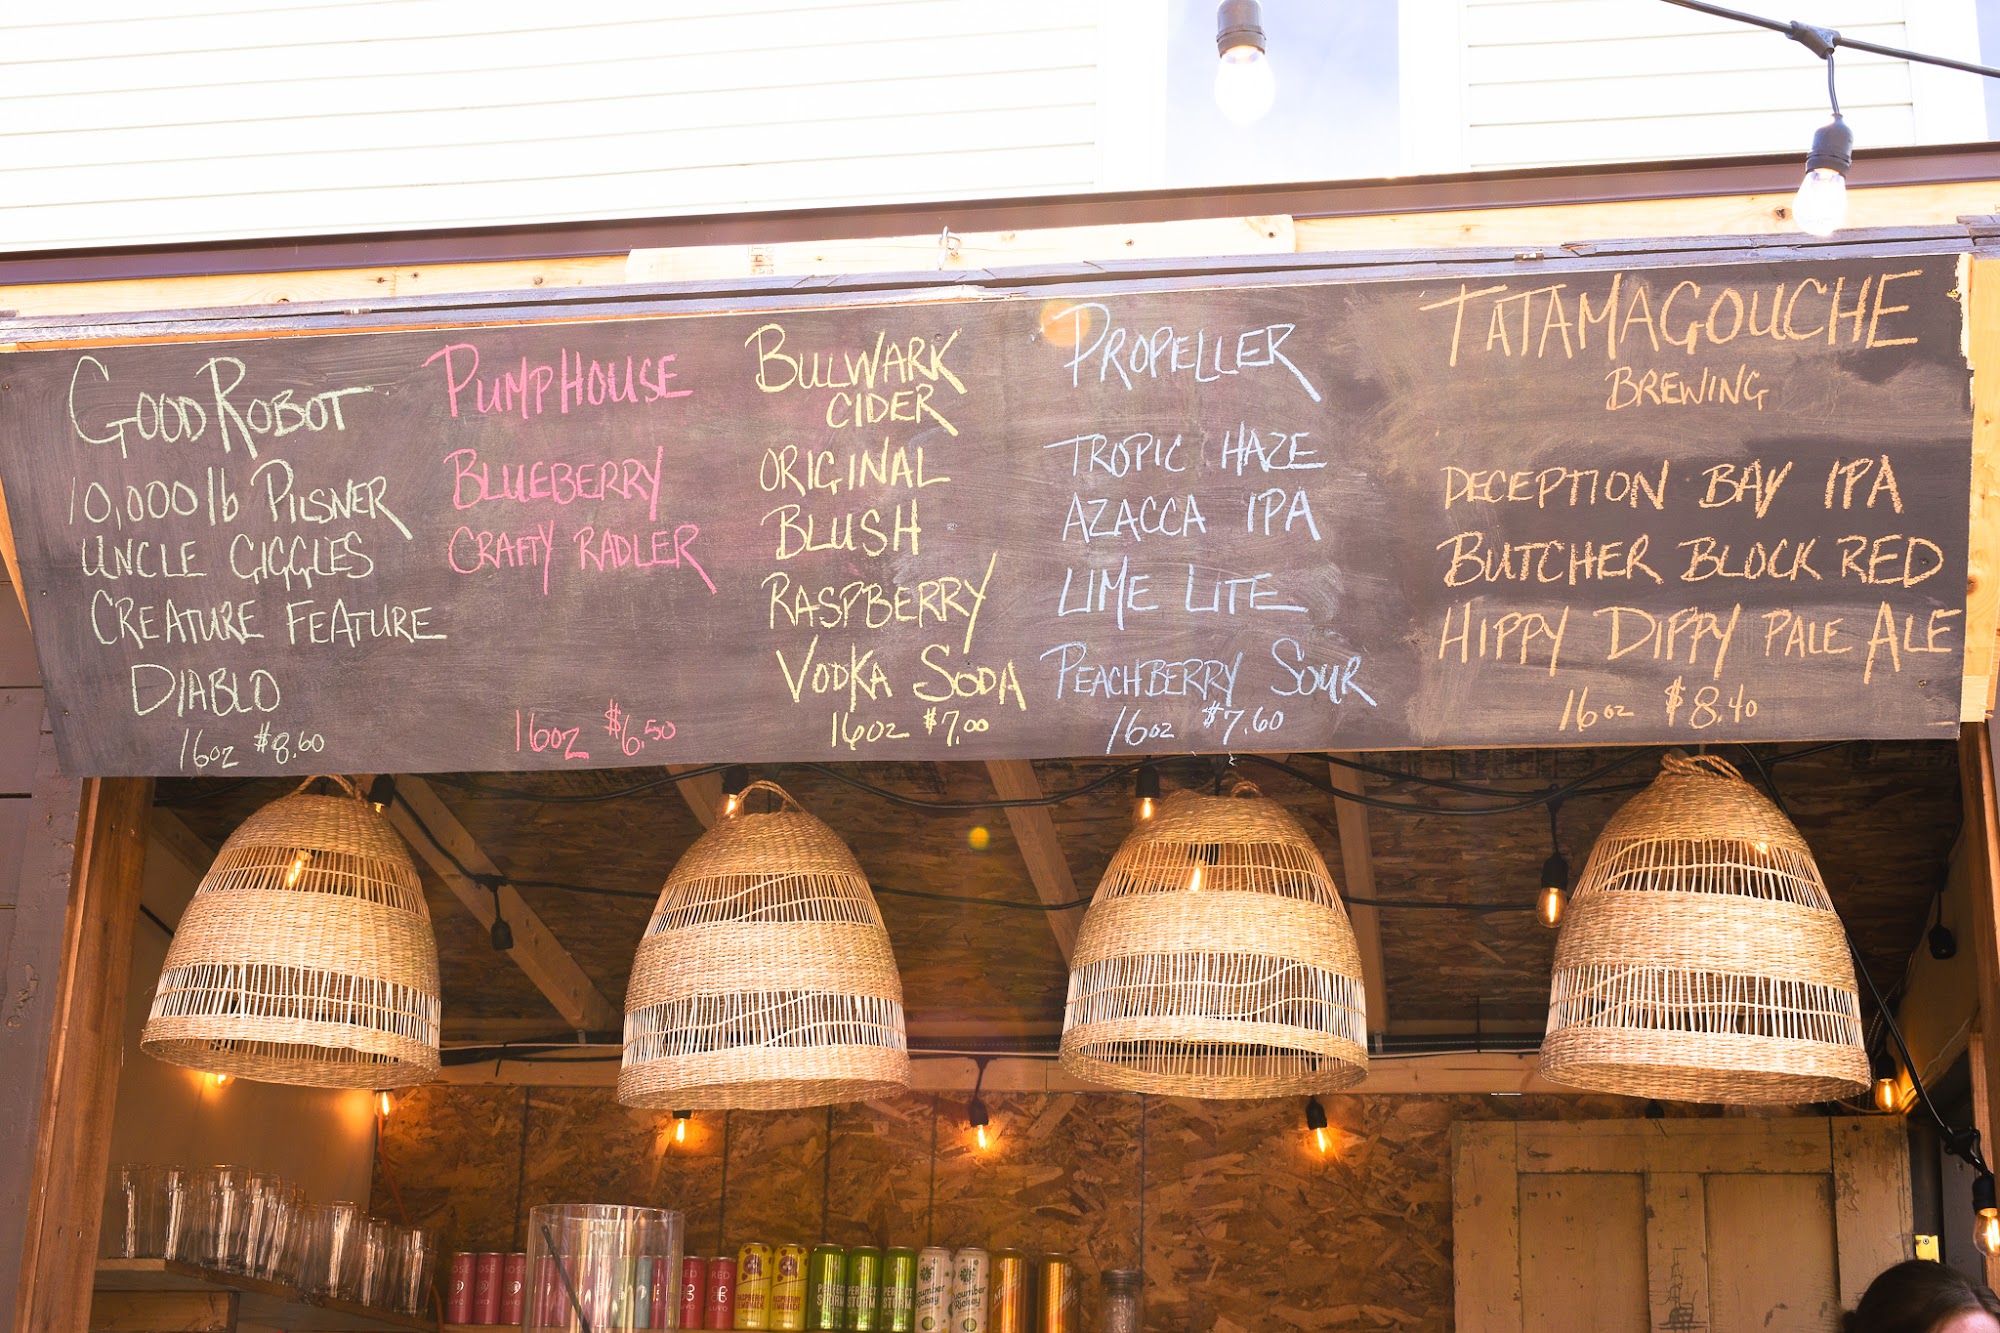 GOOD ROBOT
10,000 lb PILSNER
UNCLE GIGGLES
CREATURE FEATURE
DIABLO
16oz $8.60
PUMPHOUSE
BLUEBERRY
CRAFTY RADLER
16oz $6.50
BULWARK
CIDER
ORIGINAL
BLUSH
RASPBERRY
VODKA SODA
16oz $7.00
PROPELLER
TROPIC HAZE
AZACCA IPA
LIME LITE
PEACHBERRY SOUR
16oz $7.60
TATAMAGOUCHE
BREWING
DECEPTION BAY IPA
BUTCHER BLOCK RED
HIPPY DIPPY PALE ALE
16oz $8.40
ROSE
RED
LUVO
RASPBERRY
LEMONADE
PERFECT
STORM
PERFECT
STORM
PERFECT
STORM
Cucumber
Rickey